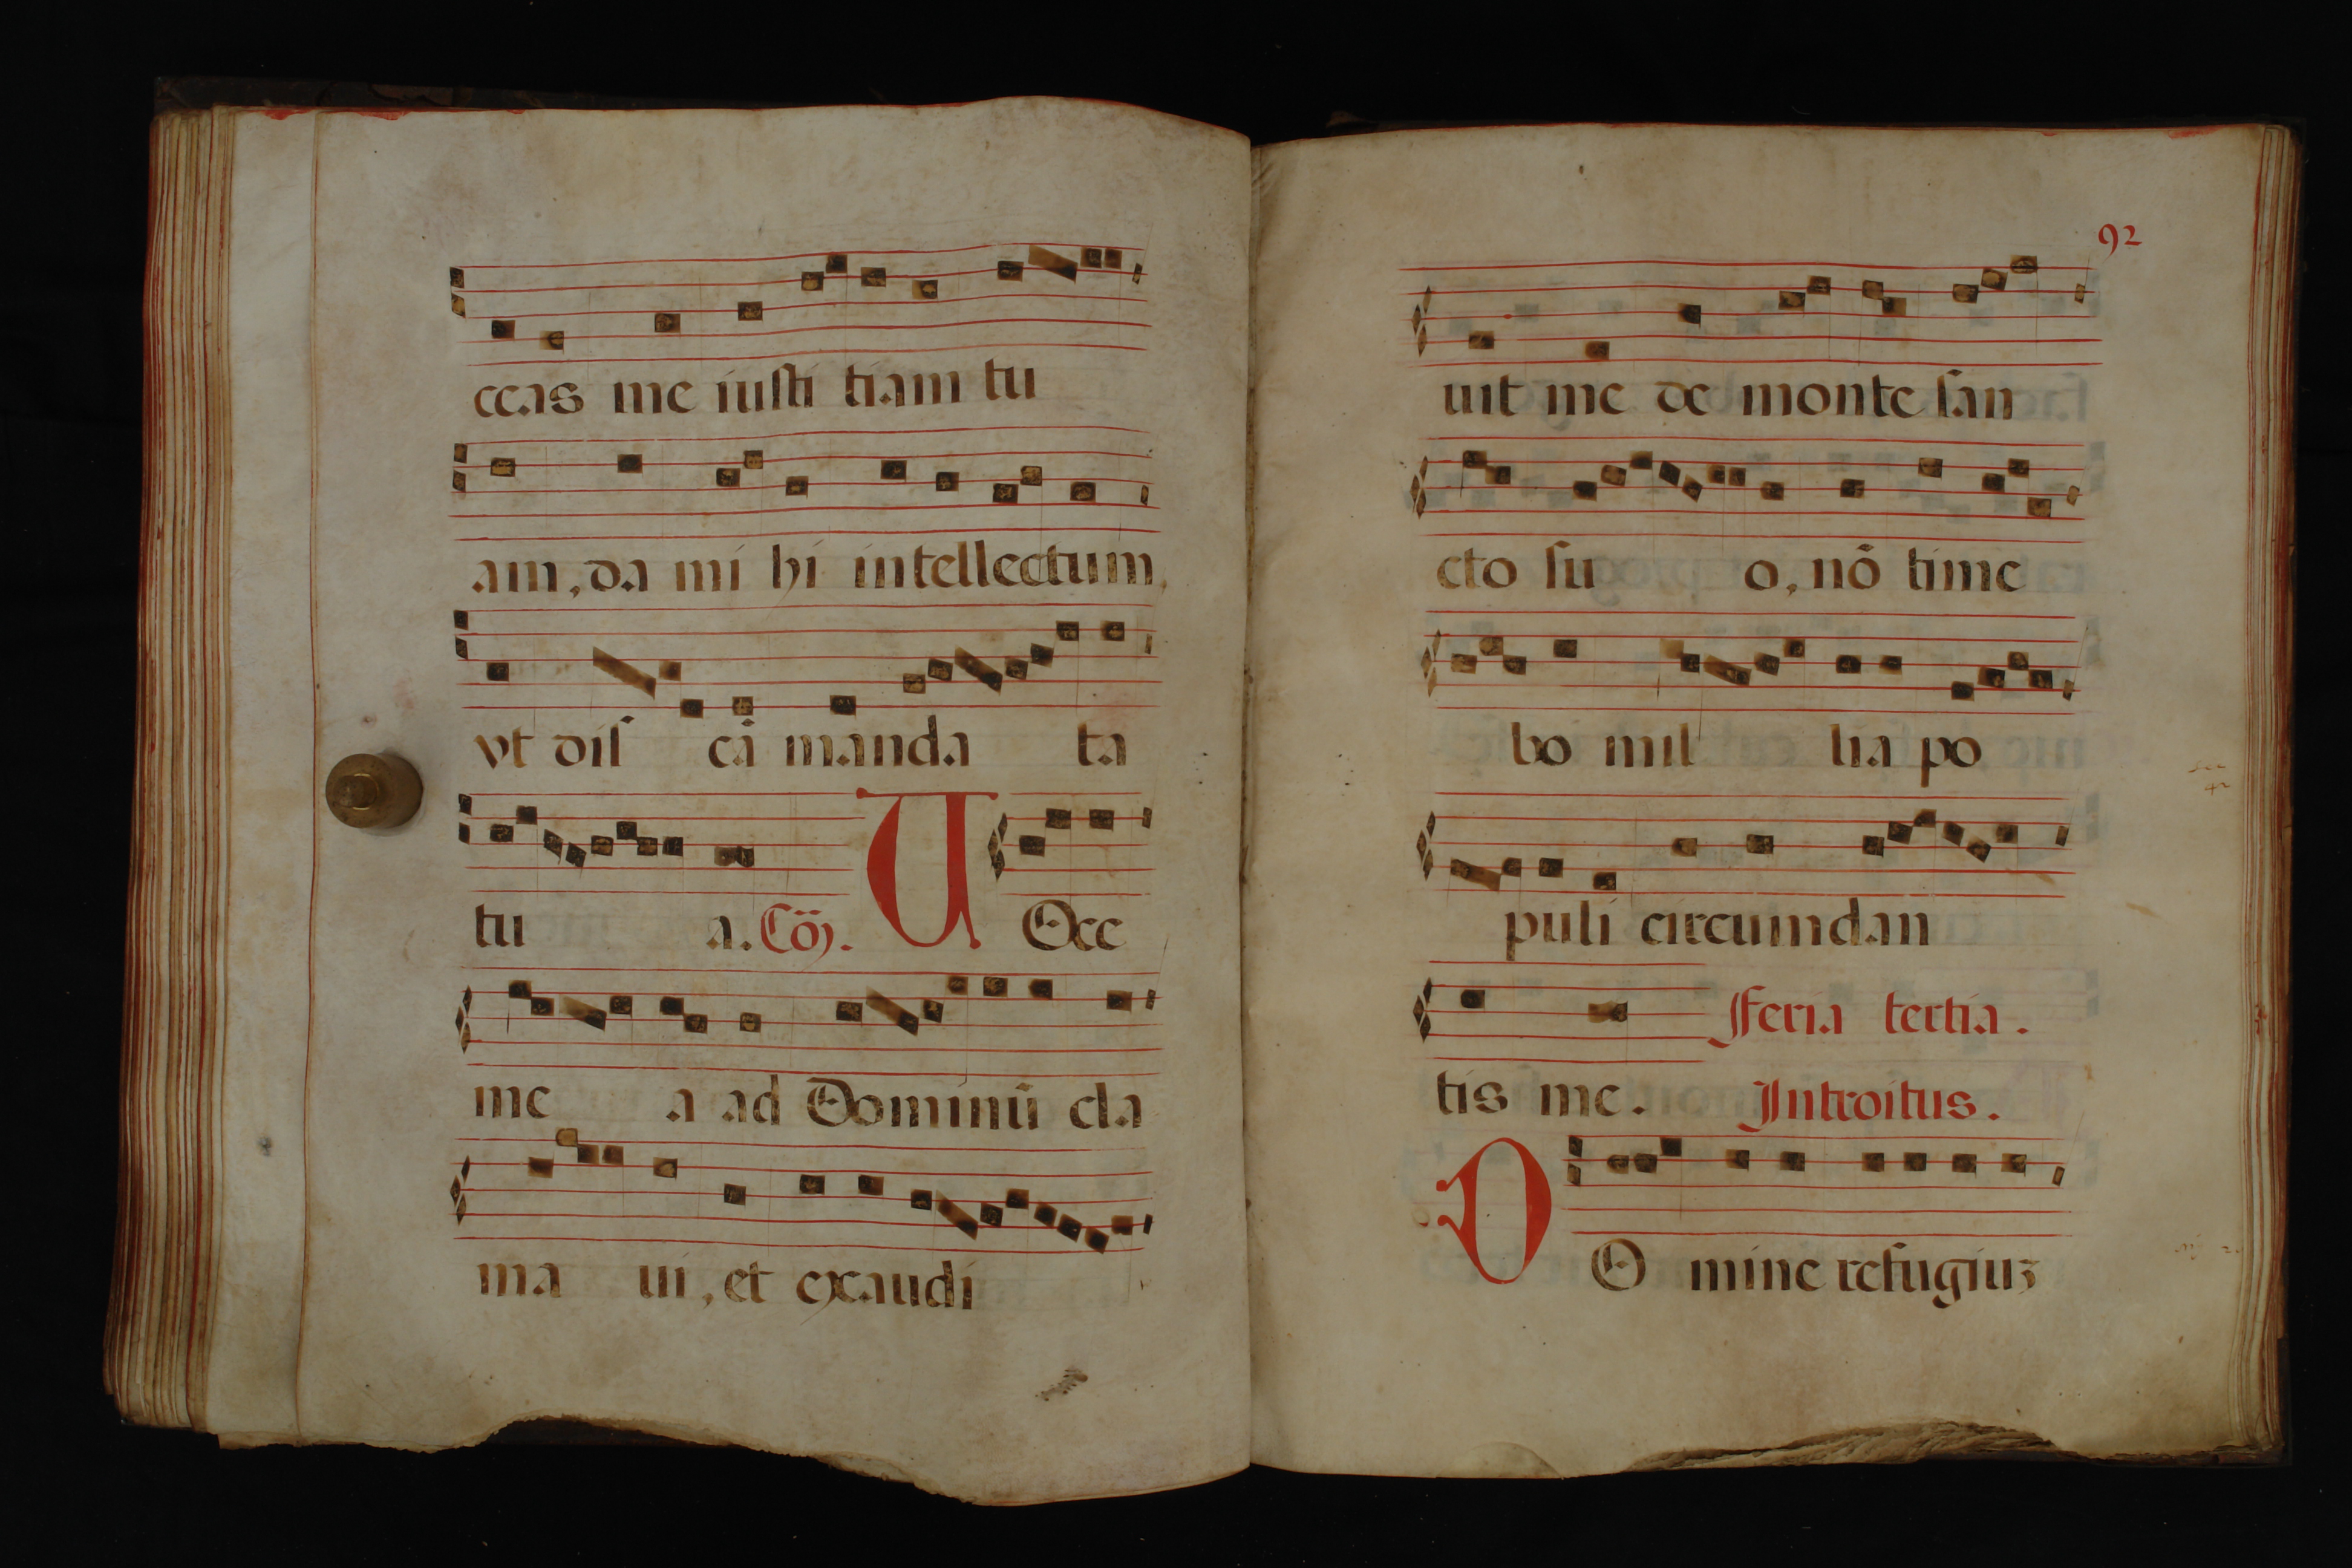 ceas me iusti tiam tu
am, da mi hi intellectum,
vt dis cā manda ta
tu a. Cō. V Oce
me a ad Dominū cla
ma ui, et exaudi
92
uit me de monte san
cto su o, nō time
bo mil lia po
puli circumdan
tis me. Feria tertia.
Introitus.
D O mine refugiuz